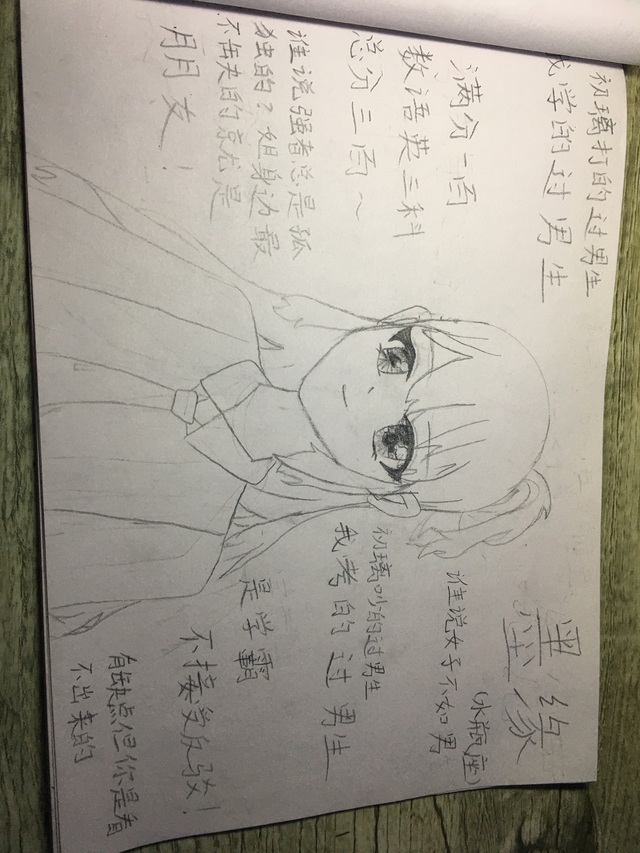 初璃打的过男生
我学的过男生
满分一百
数语英三科
总分三百~
谁说强者总是孤
独的?姐身边最
不缺失的是
朋友!
墨缘
(水瓶座)
谁说女子不如男
初璃吵的过男生
我考的过男生
是学霸
不接受反驳!
有缺点但你是看
不出来的